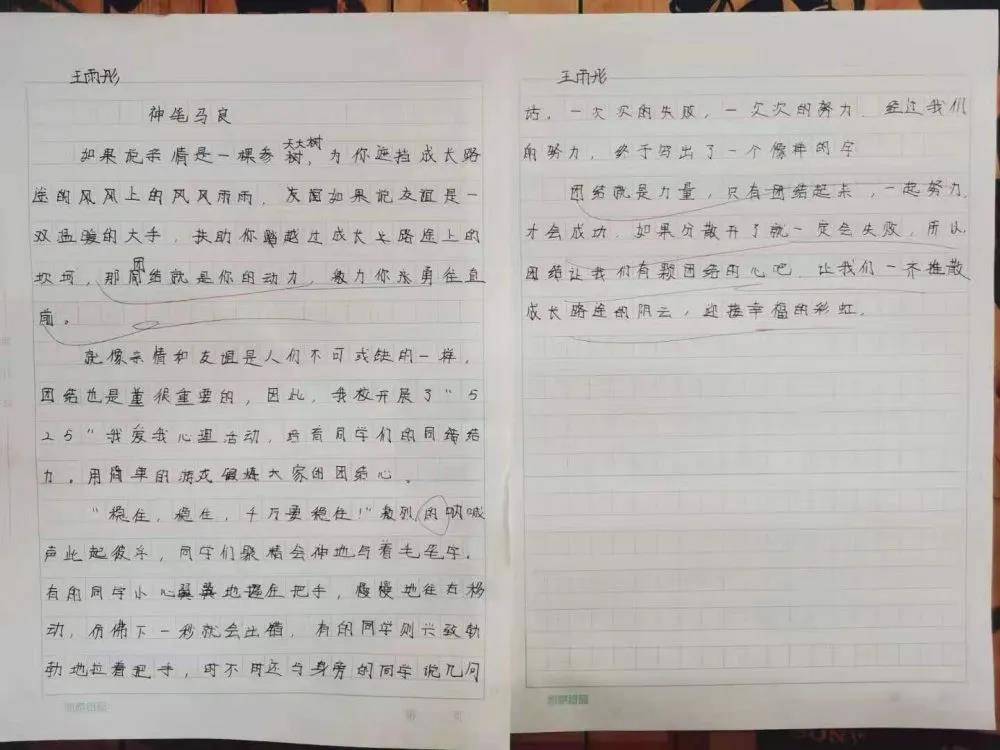 王雨彤
神笔马良
如果说亲情是一棵参天大树，为你遮挡成长路
途的风风上的风风雨雨，友谊如果说友谊是一
双温暖的大手，扶助你跨越过成长之路途上的
坎坷，那团结就是你的动力，激力你永勇往直
前。
就像亲情和友谊是人们不可或缺的一样，
团结也是重很重要的，因此，我校开展了“5
25”我爱我心理活动，培育同学们的团结
力。用简单的游戏锻炼大家的团结心。
“稳住，稳住，千万要稳住！”激烈的呐喊
声此起彼乎，同学们聚精会神地写着毛笔字。
有的同学小心翼翼地握住把手，慢慢地往右移
动，仿佛下一秒就会出错，有的同学则兴致勃
勃地拉着把手，时不时还与身旁的同学说几句
王雨彤
话，一次次的失败，一次次的努力，经过我们
的努力，终于写出了一个像样的字
团结就是力量，只有团结起来，一起努力
才会成功，如果分散开了就一定会失败，所以
团结让我们有颗团结的心吧，让我们一齐推散
成长路途的阴云，迎接幸福的彩虹。